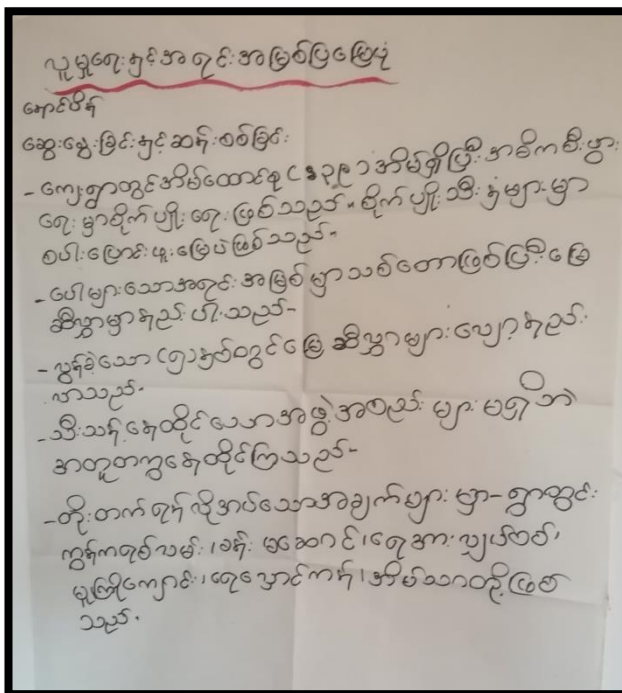 လူမှုရေးနှင့်အရင်းအမြစ်ပြမြေပုံ
ဆွေးနွေးခြင်းနှင့်ဆန်းစစ်ခြင်း
-ကျေးရွာတွင်အိမ်ထောင်စု (၁၃၉) အိမ်ရှိပြီး အဓိကစီးပွား
ရေးမှာစိုက်ပျိုးရေးဖြစ်သည်။ စိုက်ပျိုးသီးနှံများမှာ
စပါး၊ပြောင်းဖူး၊မြေပဲဖြစ်သည်-
-ပေါများသောအရင်းအမြစ်မှာသစ်တောဖြစ်ပြီး မြေ
ဆီလွှာမှာနည်းပါးသည်-
-လွန်ခဲ့သော (၅)နှစ်တွင်မြေဆီလွှာများလျော့နည်း
လာသည်-
-သီးသန့်နေထိုင်သောအဖွဲ့အစည်းများမရှိဘဲ
အတူတကွနေထိုင်ကြသည်-
-တိုးတက်ရန်လိုအပ်သောအချက်များမှာ-ရွာတွင်း
ကွန်ကရစ်လမ်း၊ခန်းမဆောင်၊ရေအားလျှပ်စစ်၊
မူကြိုကျောင်း၊ရေလှောင်ကန်၊အိမ်သာတို့ဖြစ်
သည်-